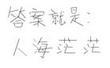 答案就是:
人海茫茫